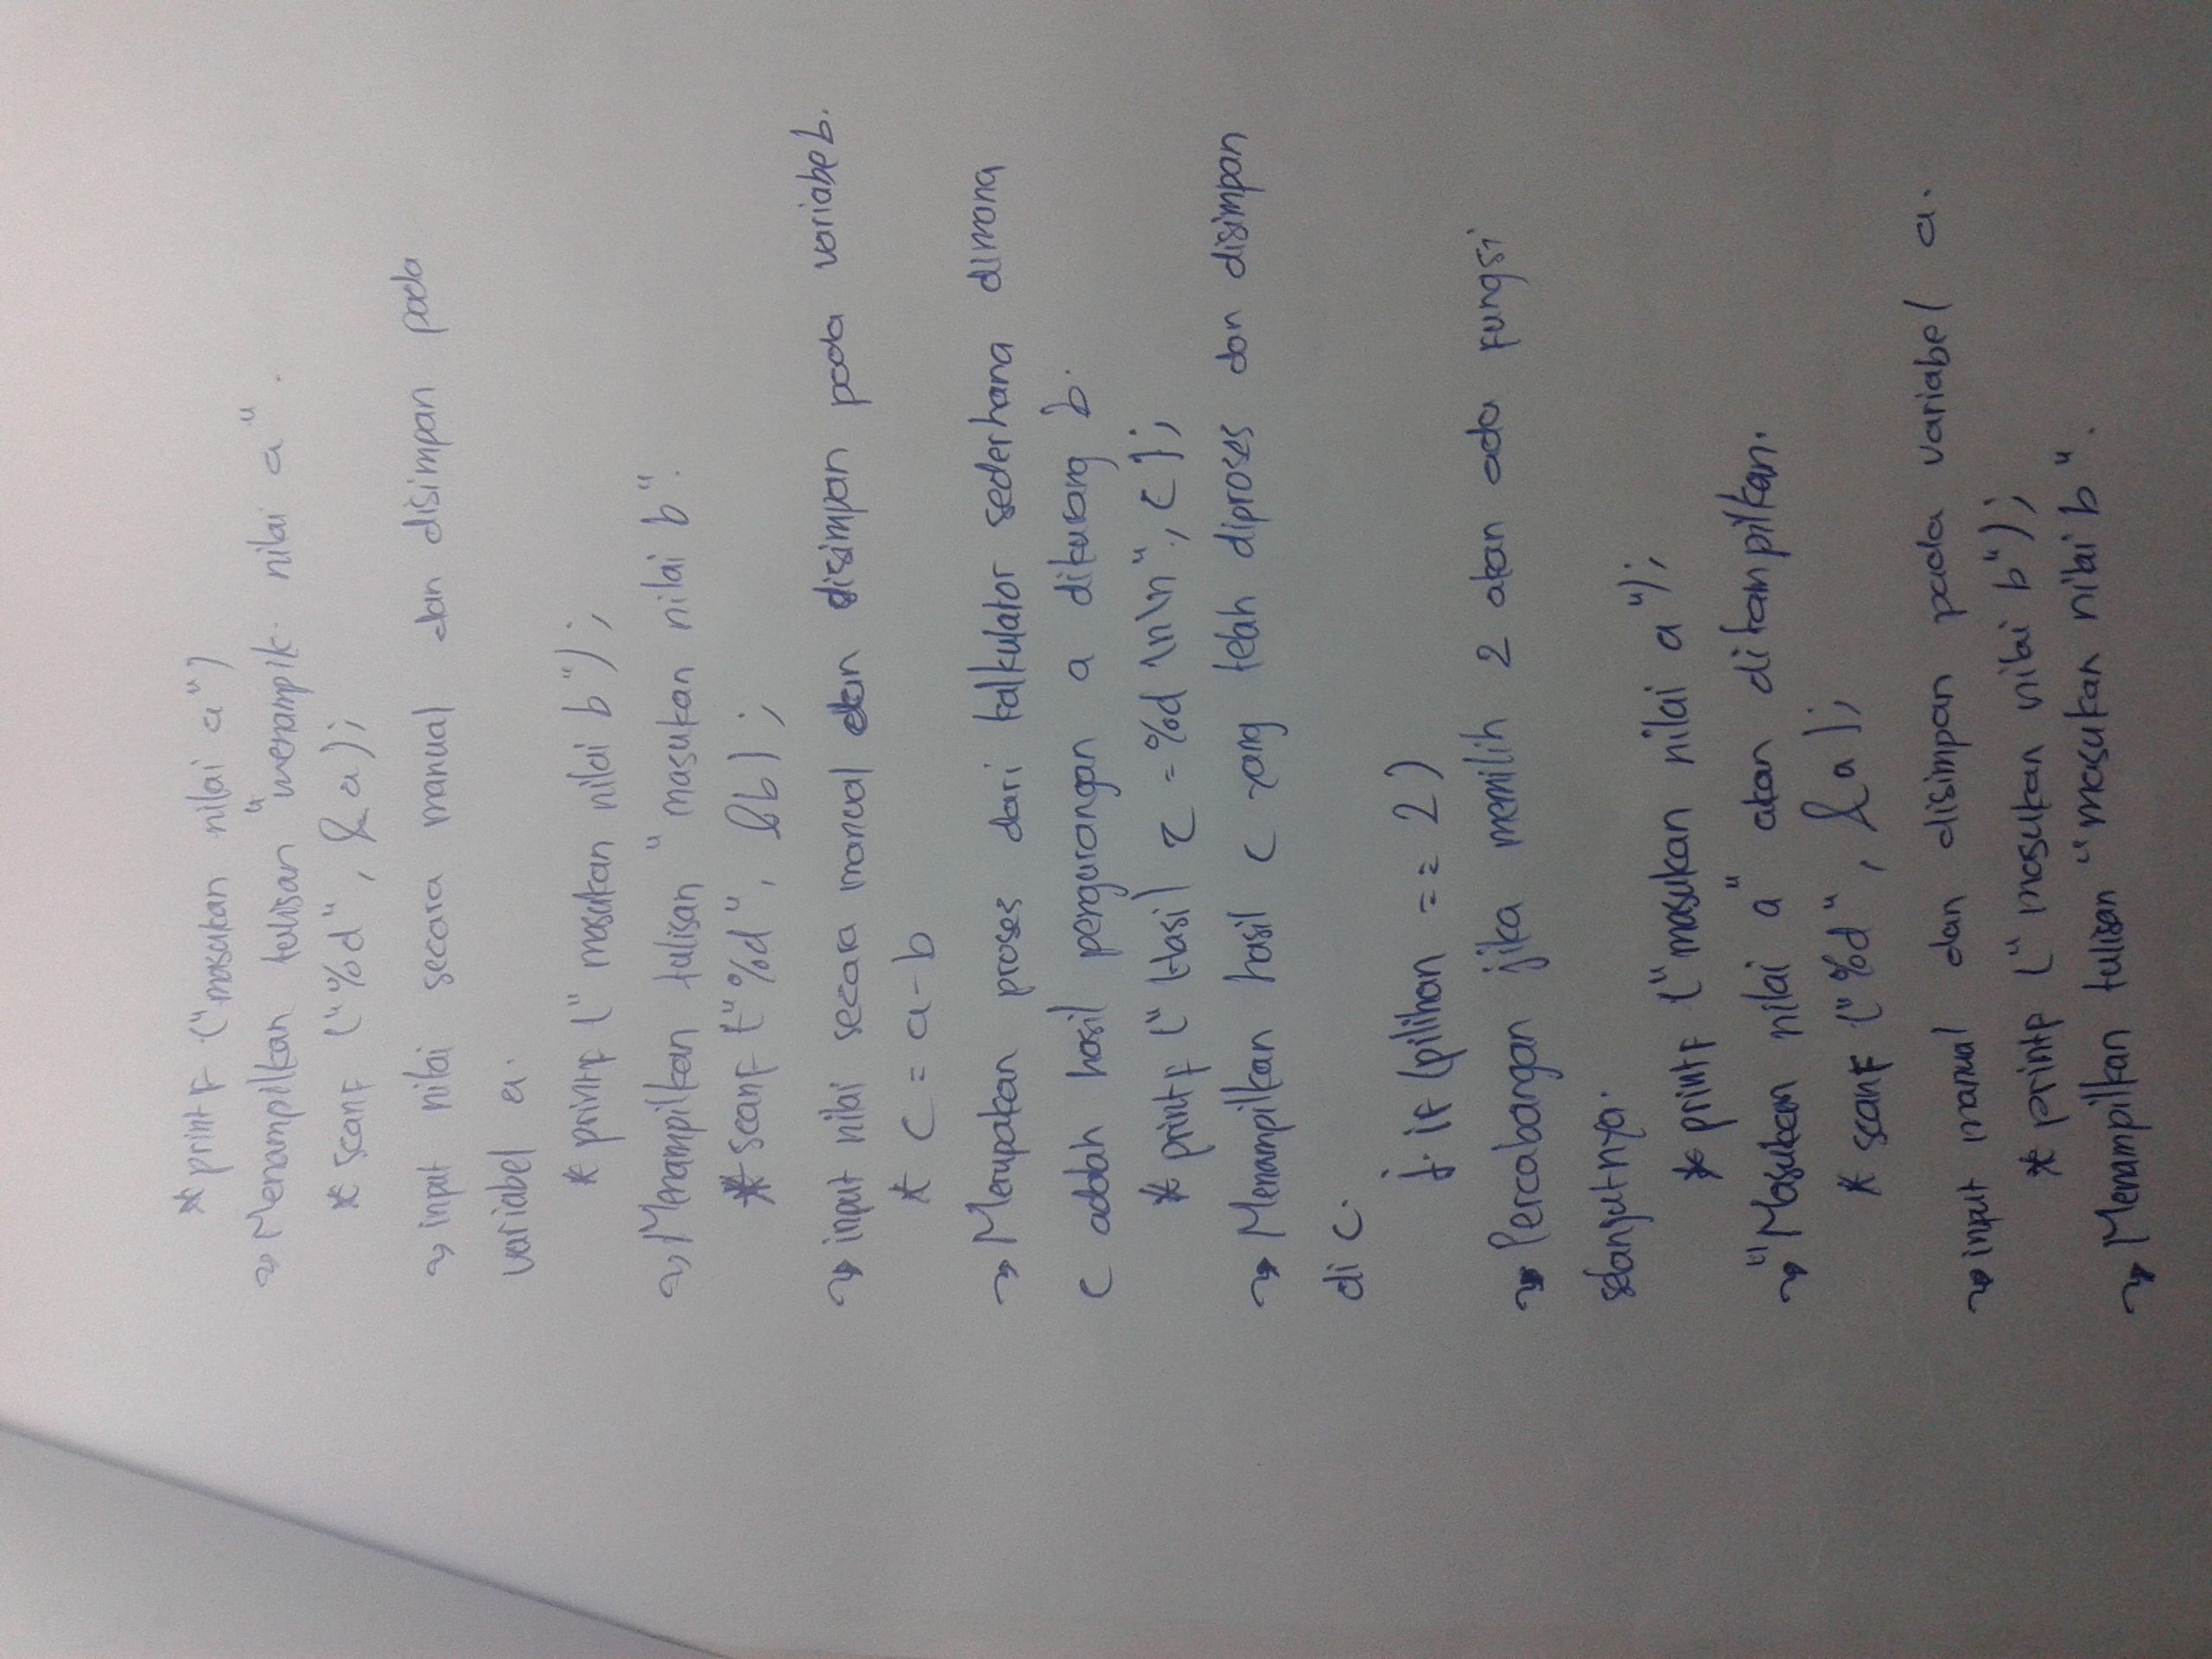 * printf ("masukan nilai a")
→ Menampilkan tulisan "menampik nilai a".
* scanf ("%d", &a);
→ input nilai secara manual dan disimpan pada
variabel a.
* printf (" masukan nilai b");
→ Menampilkan tulisan "masukan nilai b".
* scanf ("%d", &b);
→ input nilai secara manual dan disimpan pada variabe b.
* c = a - b
→ Merupakan proses dari kalkulator sederhana dimana
c adalah hasil pengurangan a dikurang b.
* printf ("Hasil c = %d \n\n", c);
→ Menampilkan hasil c yang telah diproses dan disimpan
di c.
j. if (pilihan == 2)
→ Percabangan jika memilih 2 akan ada fungsi
selanjutnya.
* printf ("masukan nilai a");
→ "Masukan nilai a" akan ditampilkan.
* scanf ("%d", &a);
→ input manual dan disimpan pada variabel a.
* printf ("masukan nilai b");
→ Menampilkan tulisan "masukan nilai b".